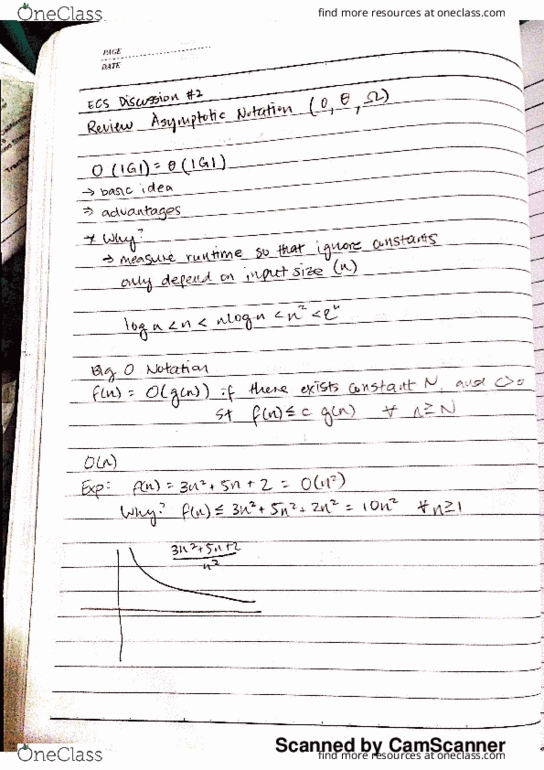 OneClass
find more resources at oneclass.com
PAGE
DATE
ECS Discussion #2
Review Asymptotic Notation (O, θ, Ω)
O(|G|) = θ(|G|)
→ basic idea
→ advantages
* Why?
→ measure runtime so that ignore constants
only depend on input size (n)
log n < n < n log n < n² < 2ⁿ
Big O Notation
f(n) = O(g(n)) if there exists constant N, and c>0
st f(n) ≤ c g(n) ∀ n ≥ N
O(n)
Exp: f(n) = 3n² + 5n + 2 = O(n²)
Why? f(n) ≤ 3n² + 5n² + 2n² = 10n² ∀ n ≥ 1
3n² + 5n + 2
n²
Scanned by CamScanner
OneClass
find more resources at oneclass.com